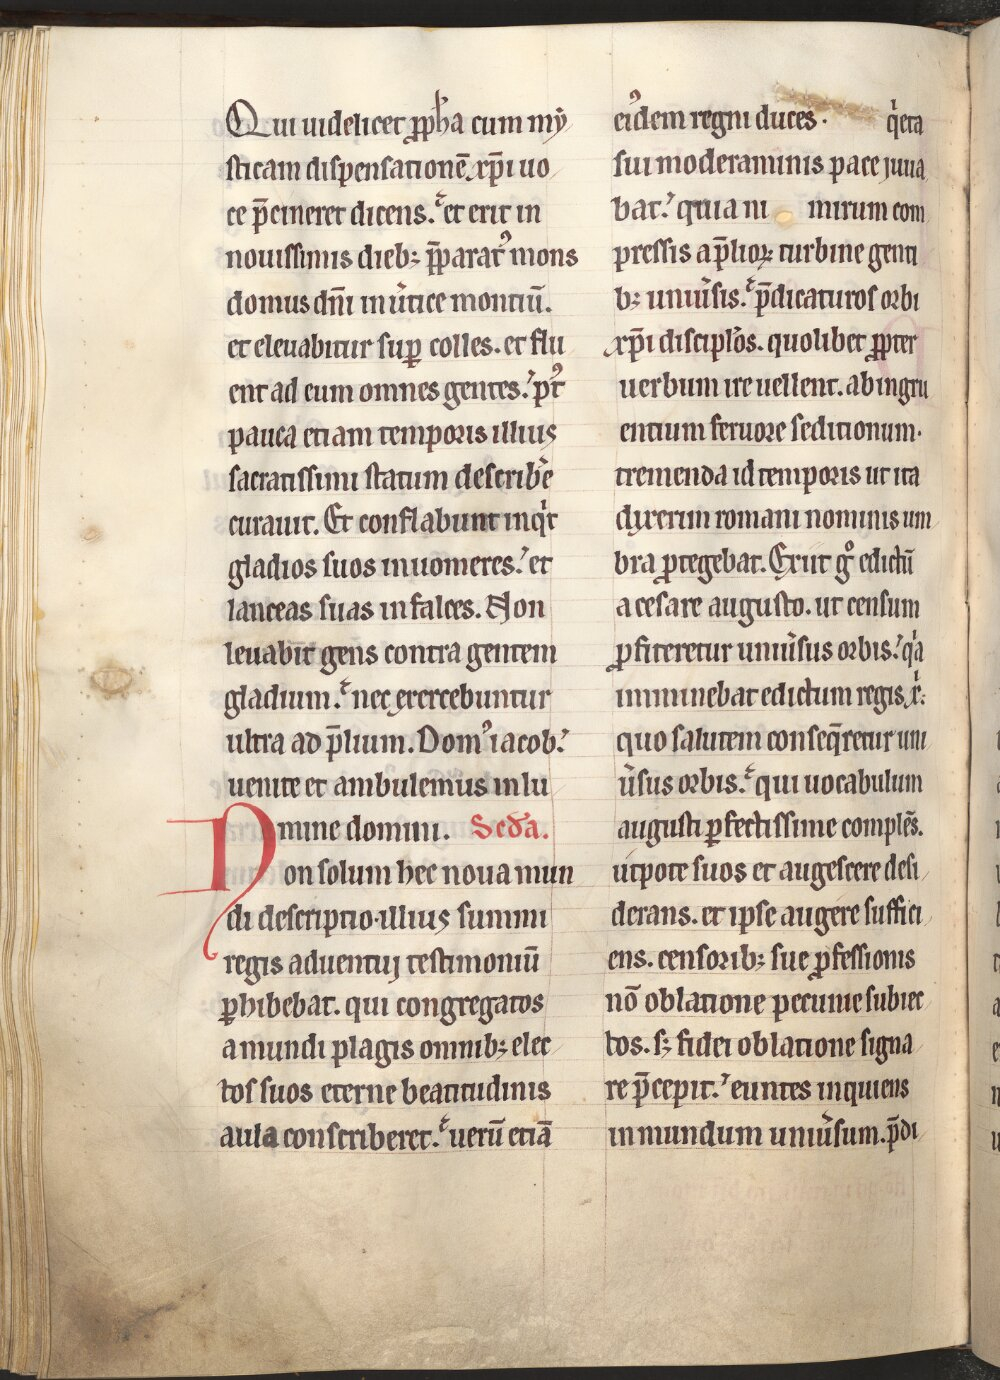 Qui uidelicet ꝓph̄a cum my
sticam dispensationē xp̄i uo
ce p̄cineret dicens. et erit in
nouissimis dieb; p̄parat᷒ mons
domus dn̄i in u̍tice montiū.
et eleuabitur suꝑ colles. et flu
ent ad eum omnes gentes. p᷒t
pauca etiam temporis illius
sacratissimi statum describe̍
curauit. Et conflabunt inqͥt
gladios suos in uomeres. et
lanceas suas in falces. Non
leuabit gens contra gentem
gladium. nec exercebuntur
ultra ad p̄lium. Dom᷒ iacob.
uenite et ambulemus in lu
mine domini. Scďa.
Non solum hec noua mun
di descriptio illius summi
regis aduentui testimoniū
ꝑhibebat. qui congregatos
a mundi plagis omnib; elec
tos suos eterne beatitudinis
aula conscriberet. uerū etiā
ei᷒dem regni duces. qͥ eta
sui moderaminis pace iuua
bat. quia ni mirum com
pressis a p̄lioꝝ turbine genti
b; uniu̍sis. p̄dicaturos orbi
xp̄i discipl̍os. quolibet ꝓpter
uerbum ire uellent. ab ingru
entium feruore seditionum.
tremenda id temporis ut ita
dixerim romani nominis um
bra ꝓtegebat. Exiit gͦ edictū
a cesare augusto. ut censum
ꝓfiteretur uniu̍sus orbis. qͥa
imminebat edictum regis x̍.
quo salutem conseq̄retur uni
u̍sus orbis. qui uocabulum
augusti ꝑfectissime complēs.
utpote suos et augescere desi
derans. et ipse augere suffici
ens. censorib; sue ꝓfessionis
nō oblatione pecunie subiec
tos. s; fidei oblatione signa
re p̄cepit. euntes inquiens
in mundum uniu̍sum. p̄di